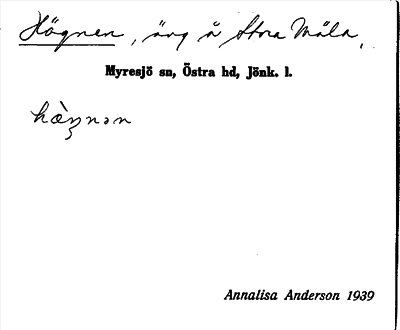 Högnen, äng å Stora Måla,
Myresjö sn, Östra hd, Jönk. l.
hæ̀ŋnən
Annalisa Anderson 1939